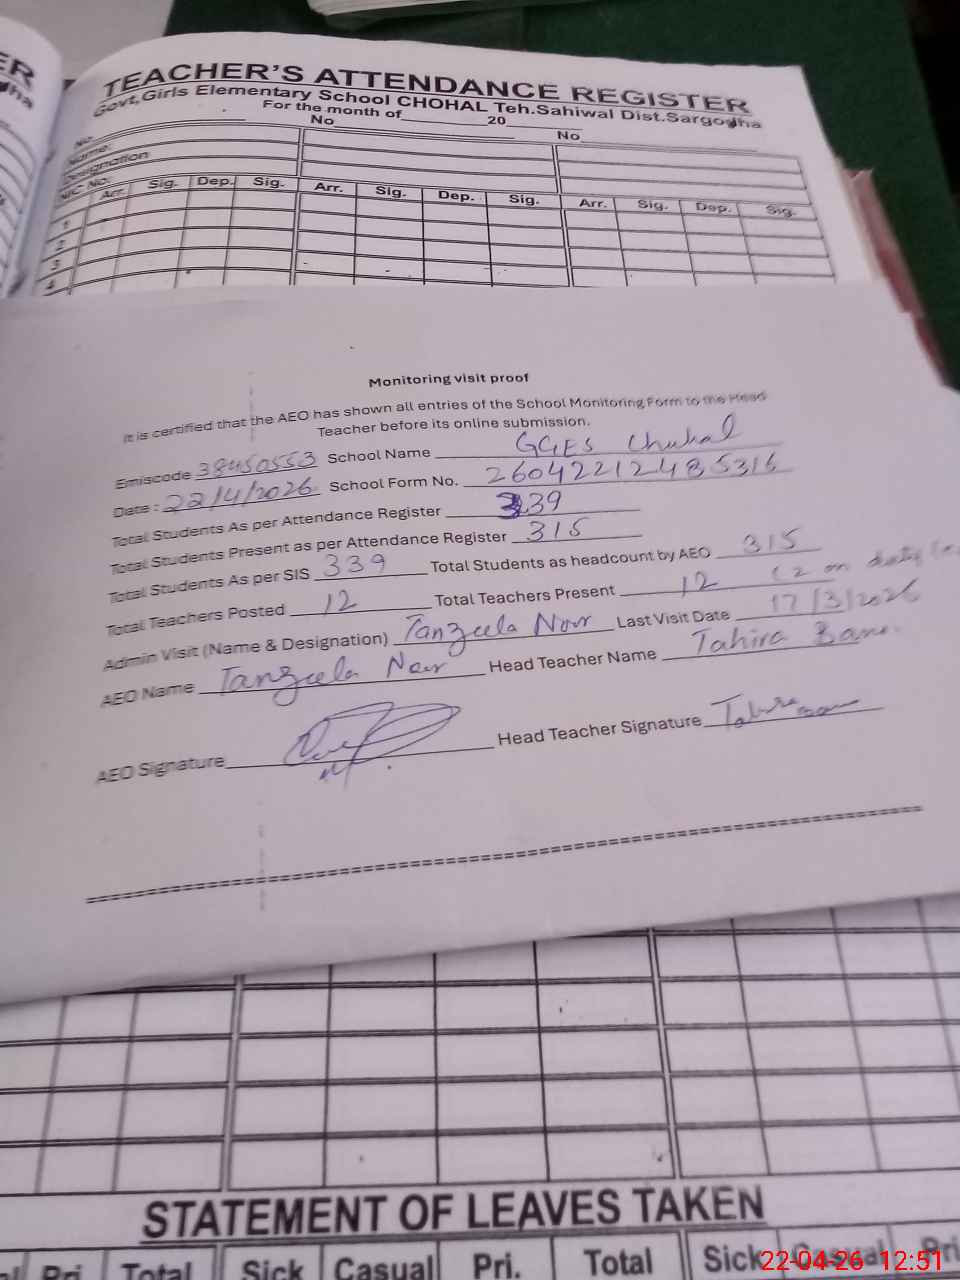 ER
TEACHER'S ATTENDANCE REGISTER
Govt,Girls Elementary School CHOHAL Teh.Sahiwal Dist.Sargodha
For the month of 20
No No No
Name:
Designation
NIC No.
Arr. Sig. Dep. Sig. Arr. Sig. Dep. Sig. Arr. Sig. Dep. Sig.
1
2
3
4
Monitoring visit proof
It is certified that the AEO has shown all entries of the School Monitoring Form to the Head
Teacher before its online submission.
Emiscode 38450553 School Name GGES Chuhal
Date : 22/4/2026 School Form No. 26042212485316
Total Students As per Attendance Register 339
Total Students Present as per Attendance Register 315
Total Students As per SIS 339 Total Students as headcount by AEO 315
Total Teachers Posted 12 Total Teachers Present 12 (2 on duty
Admin Visit (Name & Designation) Tanzeela Noor Last Visit Date 17/3/2026
AEO Name Tanzeela Noor Head Teacher Name Tahira Bano.
AEO Signature Head Teacher Signature Tahira Bano
STATEMENT OF LEAVES TAKEN
Pri. Total Sick Casual Pri. Total Sick Casual Pri
22-04-26 12:51